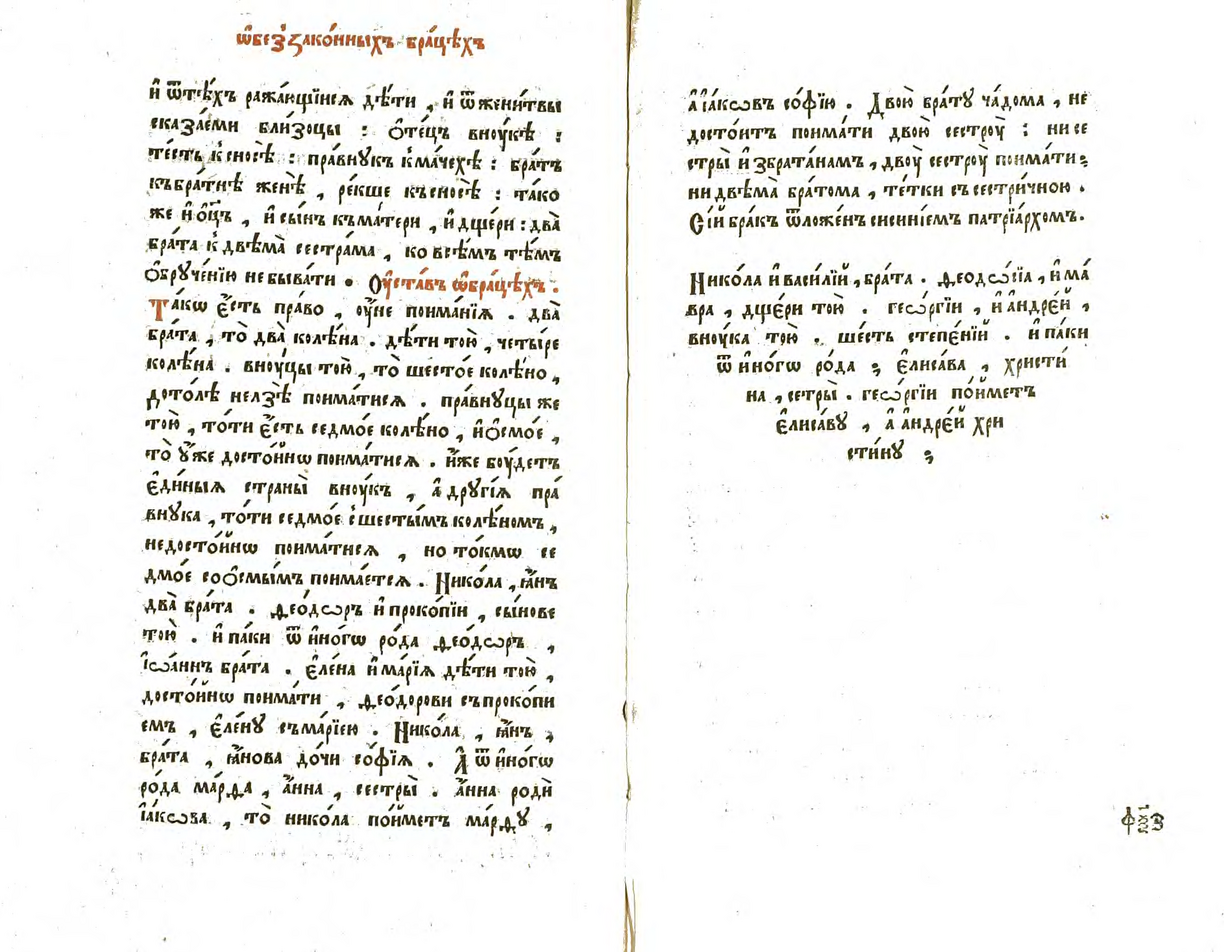 ѡ҆беззако́нныхъ бра́цѣхъ
и҆ ѿтѣ́хъ ражда́ющїися дѣ́ти , и҆ ѿжени́твы
сказа́еми бли́зоцы : ѻ҆те́цъ внꙋ́кѣ :
те́сть к̾сносѣ̀ : пра́внꙋкъ к̾ма́чехѣ : бра́тъ
къбра́тнѣ женѣ̀ , ре́кше къ сносѣ̀ : та́ко
же и҆ ѻ҆ц҃ъ , и҆ сы́нъ къма́тери , и҆ дще́ри : два̀
бра́та к̾ двѣма̀ сестра́ма , ко всѣ́мъ тѣ́мъ
ѻ҆брꙋче́нїю небыва́ти . Оу҆ста́въ ѡ҆бра́цѣхъ .
Та́кѡ є҆́сть пра́во , оу҆́не поима́нїя . два̀
бра́та , то̀ два̀ колѣ́на . дѣ́ти тою̀ , четы́ре
колѣ́на . внꙋ́цы тою̀ , то̀ шесто́е колѣ́но ,
дото́лѣ нелзѣ̀ поима́тися . пра́внꙋцы же
тою̀ , то́ти є҆́сть седмо́е колѣ́но , и҆ ѻ҆смо́е ,
то̀ ᲂу҆́же досто́йнѡ поима́тися . и҆́же бꙋ́детъ
є҆ди́ныя страны̀ внꙋ́къ , а҆ дрꙋгі́я пра́
внꙋка , то́ти седмо́е с̾шесты́мъ колѣ́номъ ,
недосто́йнѡ поима́тися , но то́кмѡ се
дмо́е соѻсмы́мъ поима́ется . Нико́ла , ꙗ҆́нъ
два̀ бра́та . Ѳео́дѡръ и҆ проко́пїи , сы́нове
тою̀ . и҆ па́ки ѿ и҆но́гѡ ро́да Ѳео́дѡръ ,
І҆ѡа́ннъ бра́та . Є҆ле́на и҆ ма́рїя дѣ́ти тою̀ ,
досто́йнѡ поима́ти , Ѳео́дорови съпроко́пи
емъ , Є҆ле́нꙋ съма́рїею . Нико́ла , ꙗ҆́нъ ,
бра́та , ꙗ҆́нова до́чи со́фїя . А҆ ѿ и҆но́гѡ
ро́да ма́рѳа , а҆́нна , сестры̀ . а҆́нна родѝ
і҆а́кѡва , то̀ нико́ла по́йметъ ма́рѳꙋ ,
а҆ і҆а́кѡвъ со́фїю . Двою̀ бра́тꙋ ча́дома , не
досто́итъ поима́ти двою̀ сестрꙋ̀ : ни се
стры̀ и҆ збрата́намъ , двꙋ̀ сестрꙋ̀ поима́ти ;
ни двѣ́ма бра́тома , те́тки съ сестри́чною .
Сі́й бра́къ ѿложе́нъ сисині́емъ патрїа́рхомъ .
Нико́ла и҆ васи́лїй , бра́та . Ѳеодо́сїа , и҆ ма́
вра , дще́ри тою̀ . гео́ргїи , и҆ а҆ндре́й ,
внꙋ́ка тою̀ . ше́сть степе́нїй . и҆ па́ки
ѿ и҆но́гѡ ро́да ; Є҆лиса́ва , христи́
на , сетры̀ . гео́ргїи по́йметъ
Є҆лиса́вꙋ , а҆ а҆ндре́й хри
сти́нꙋ ;